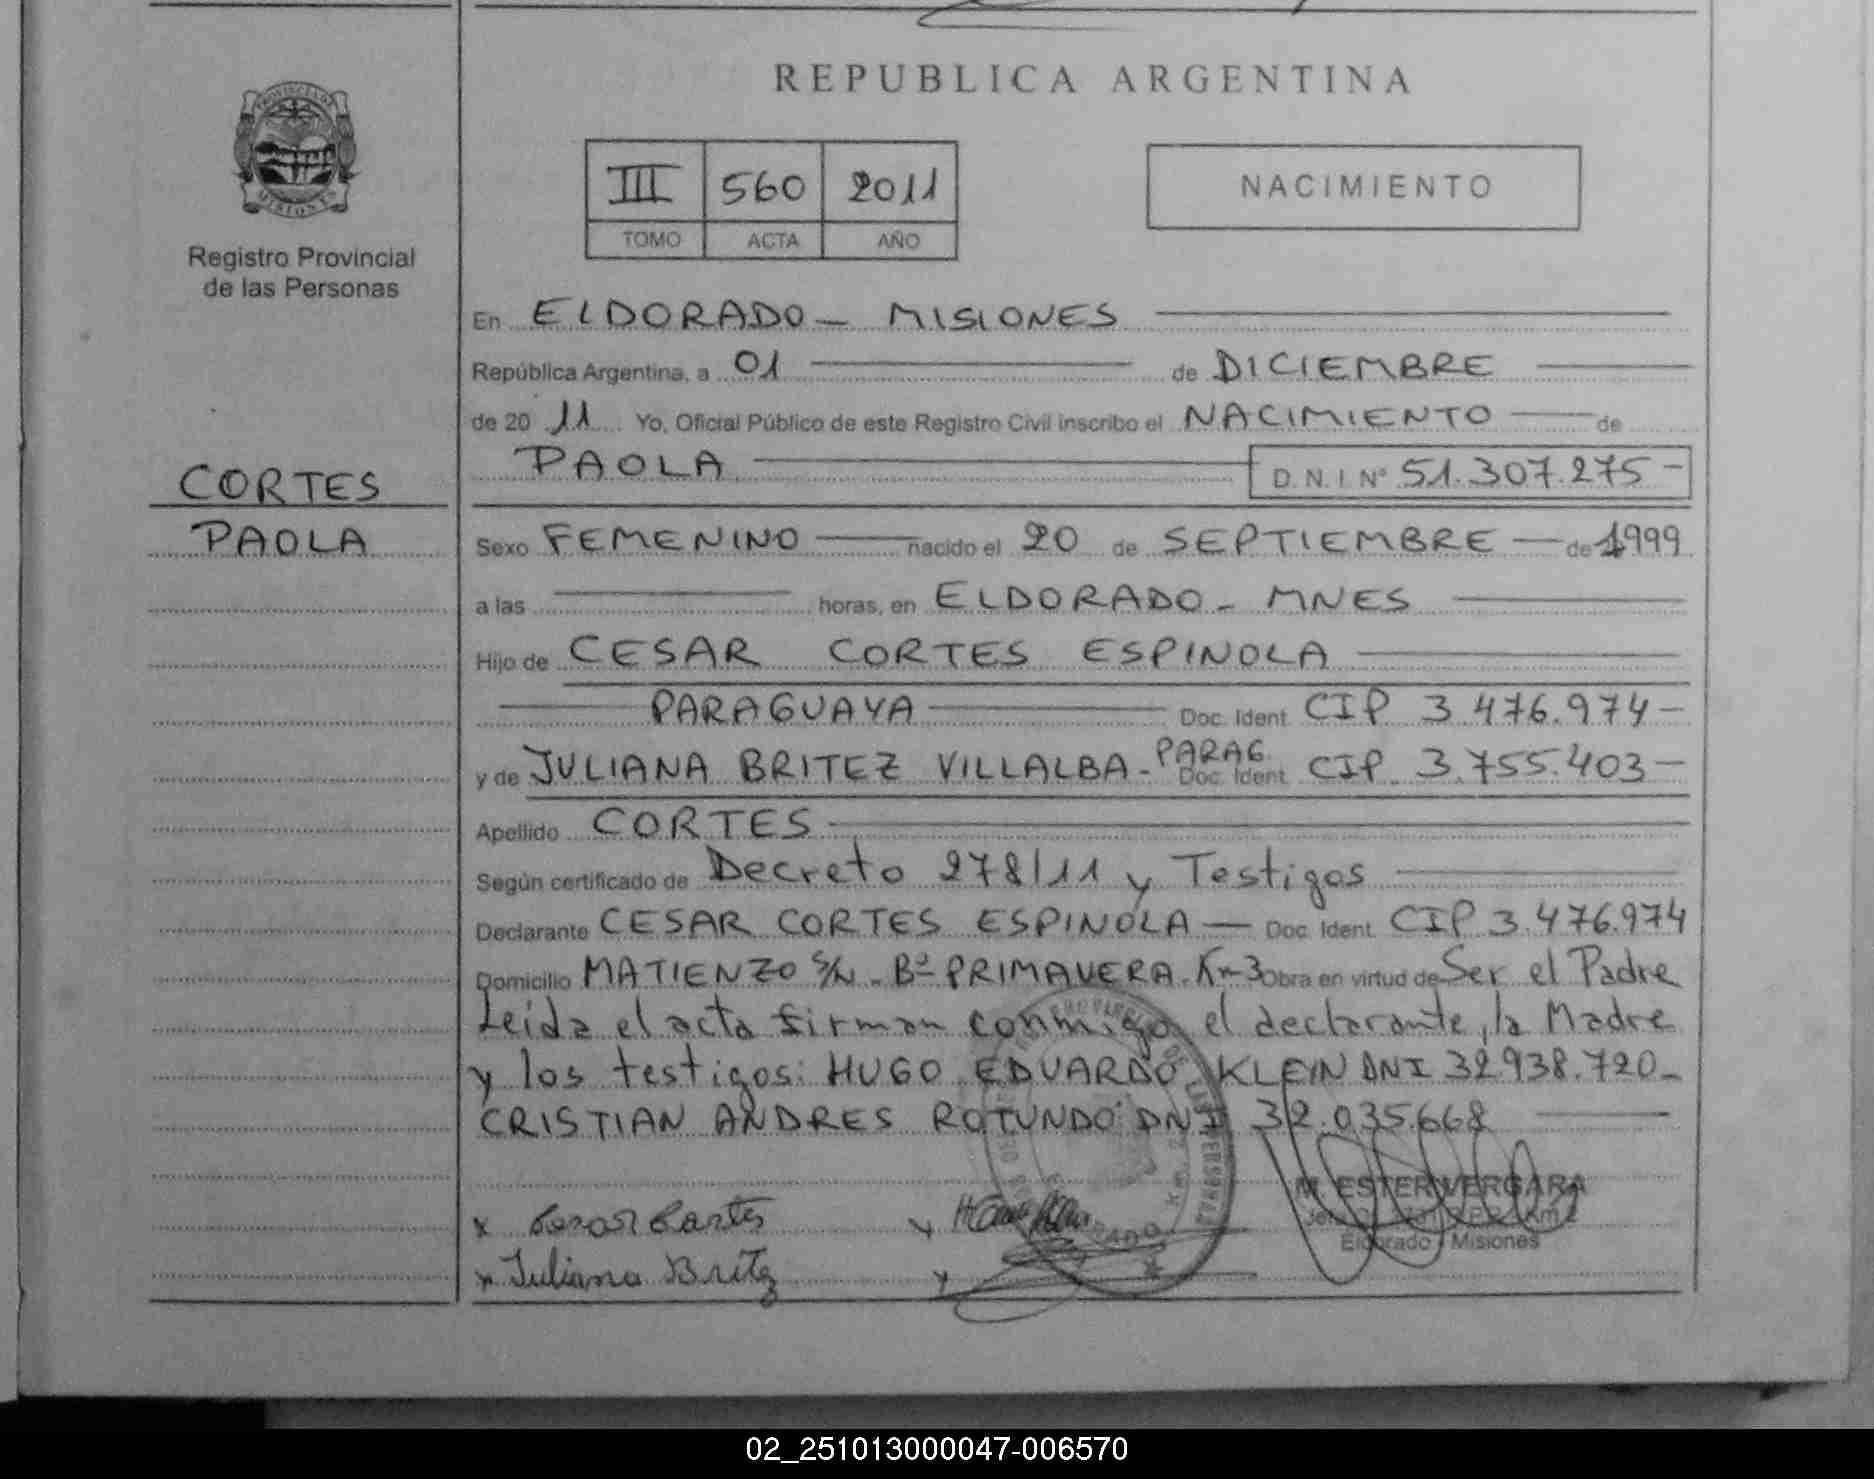 REPUBLICA ARGENTINA
PROVINCIA DE
MISIONES
Registro Provincial
de las Personas
III 560 2011
TOMO ACTA AÑO
NACIMIENTO
En ELDORADO - MISIONES
República Argentina, a 01 de DICIEMBRE
de 20 11 Yo, Oficial Público de este Registro Civil inscribo el NACIMIENTO de
PAOLA D.N.I. Nº 51.307.275-
CORTES
PAOLA
Sexo FEMENINO nacido el 20 de SEPTIEMBRE de 1999
a las horas, en ELDORADO - MNES
Hijo de CESAR CORTES ESPINOLA
PARAGUAYA Doc. Ident. CIP 3.476.974-
y de JULIANA BRITEZ VILLALBA - PARAG. Doc. Ident. CIP 3.755.403-
Apellido CORTES
Según certificado de Decreto 278/11 y Testigos
Declarante CESAR CORTES ESPINOLA - Doc. Ident. CIP 3.476.974
Domicilio MATIENZO S/N - Bº PRIMAVERA. Km 3 Obra en virtud de Ser el Padre
Leida el acta firman conmigo el declarante, la Madre
y los testigos: HUGO EDUARDO KLEIN DNI 32.938.720-
CRISTIAN ANDRES ROTUNDO DNI 32.035.668
M. ESTER VERGARA
Eldorado - Misiones
x Cesar Cortes
x Juliana Britez
02_251013000047-006570